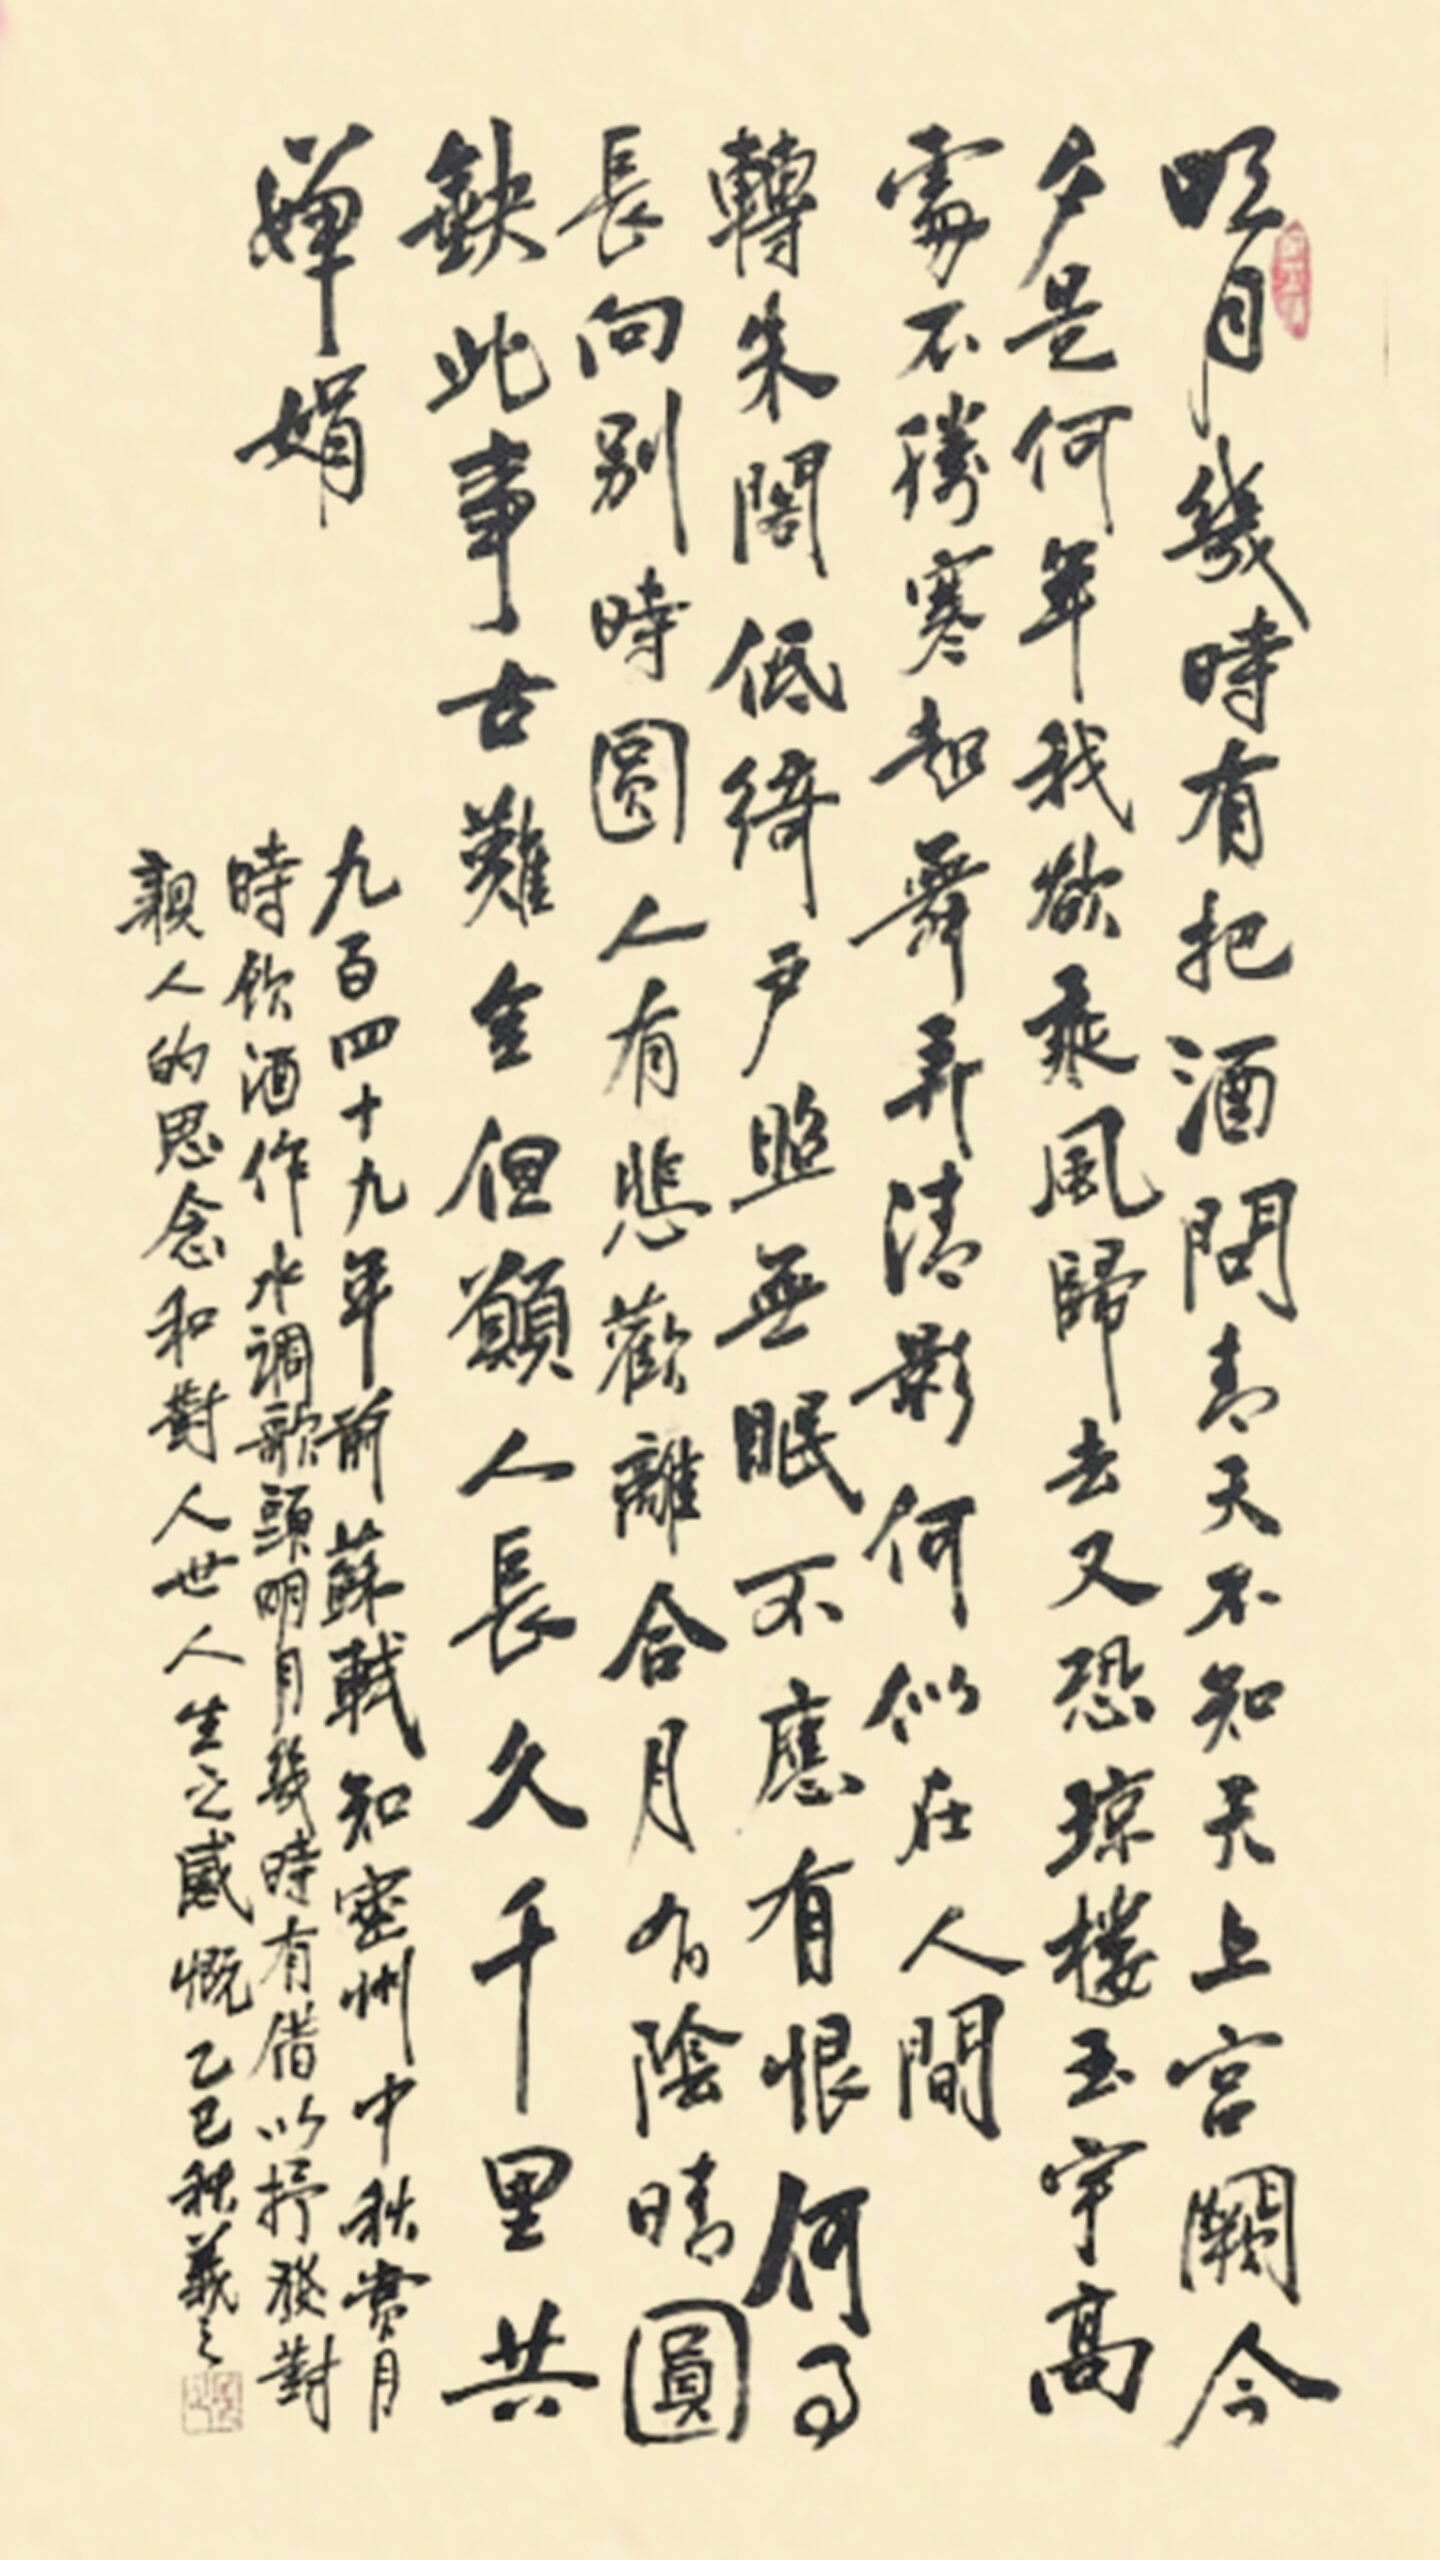 明月幾時有把酒問青天不知天上宮闕今
夕是何年我欲乘風歸去又恐琼樓玉宇高
處不勝寒起舞弄清影何似在人間
轉朱閣低綺戶照無眠不應有恨何事
長向別時圓人有悲歡離合月有陰晴圓
缺此事古難全但願人長久千里共
嬋娟
九百四十九年前蘇軾知密州中秋賞月
時飲酒作水調歌頭明月幾時有借以抒發對
親人的思念和對人世人生之感慨乙巳秋義之